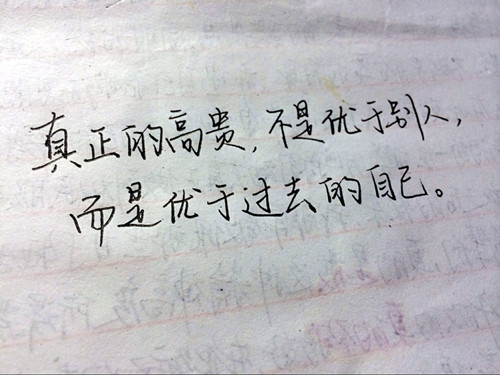 真正的高贵,不是优于别人,
而是优于过去的自己。